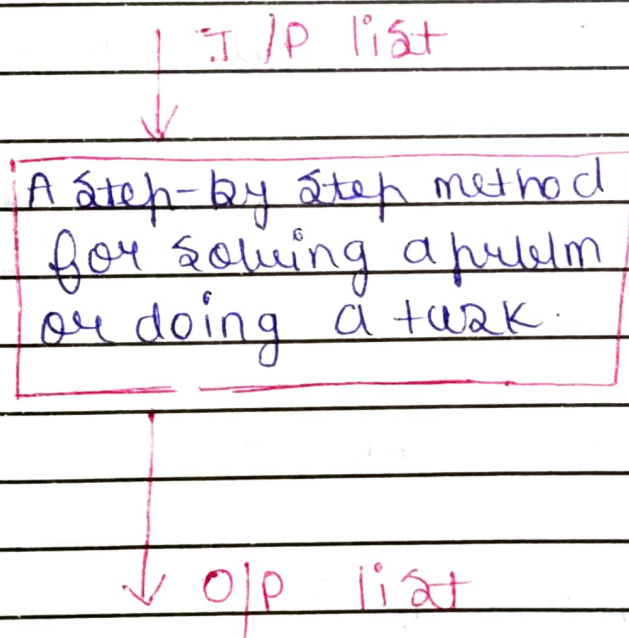 I/P list
A step-by step method
for solving a prulelm
or doing a task.
O/P list